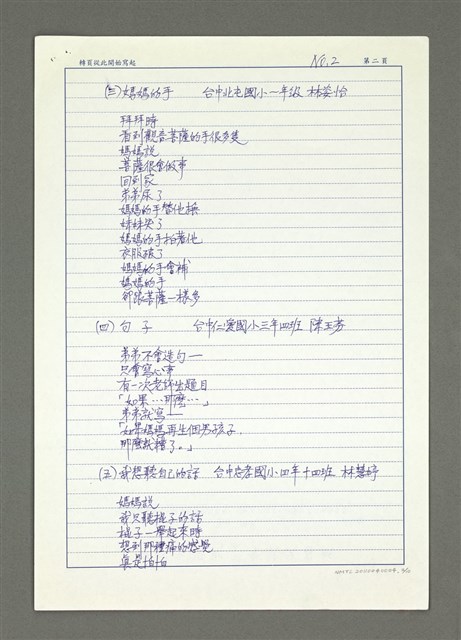 轉頁從此開始寫起 No. 2 第二頁
(三) 媽媽的手 台中北屯國小一年級 林姿怡
拜拜時
看到觀音菩薩的手很多隻
媽媽說
菩薩很會做事
回到家
弟弟尿了
媽媽的手替他換
妹妹哭了
媽媽的手拍著他
衣服破了
媽媽的手會補
媽媽的手
卻跟菩薩一樣多
(四) 句子 台中仁愛國小三年四班 陳玉芳
弟弟不會造句—
只會寫心事
有一次老師出題目
「如果…那麼…」
弟弟就寫—
「如果媽媽再生個男孩子,
那麼就糟了。」
(五) 我想聽自己的話 台中忠孝國小四年十四班 林慧婷
媽媽說
我只聽棍子的話
棍子一舉起來時
想到那種痛的感覺
真是怕怕